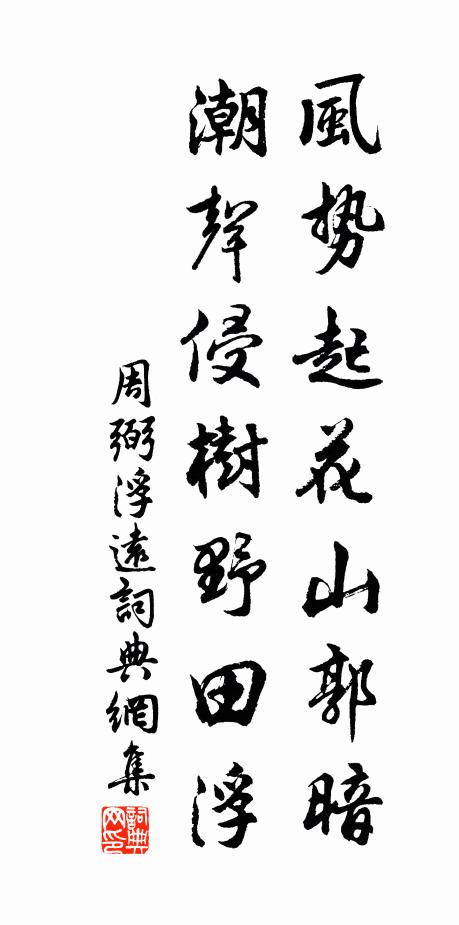 風勢起花山郭暗
潮聲侵樹野田浮
周弼浮遠詞典網集
詞典網印